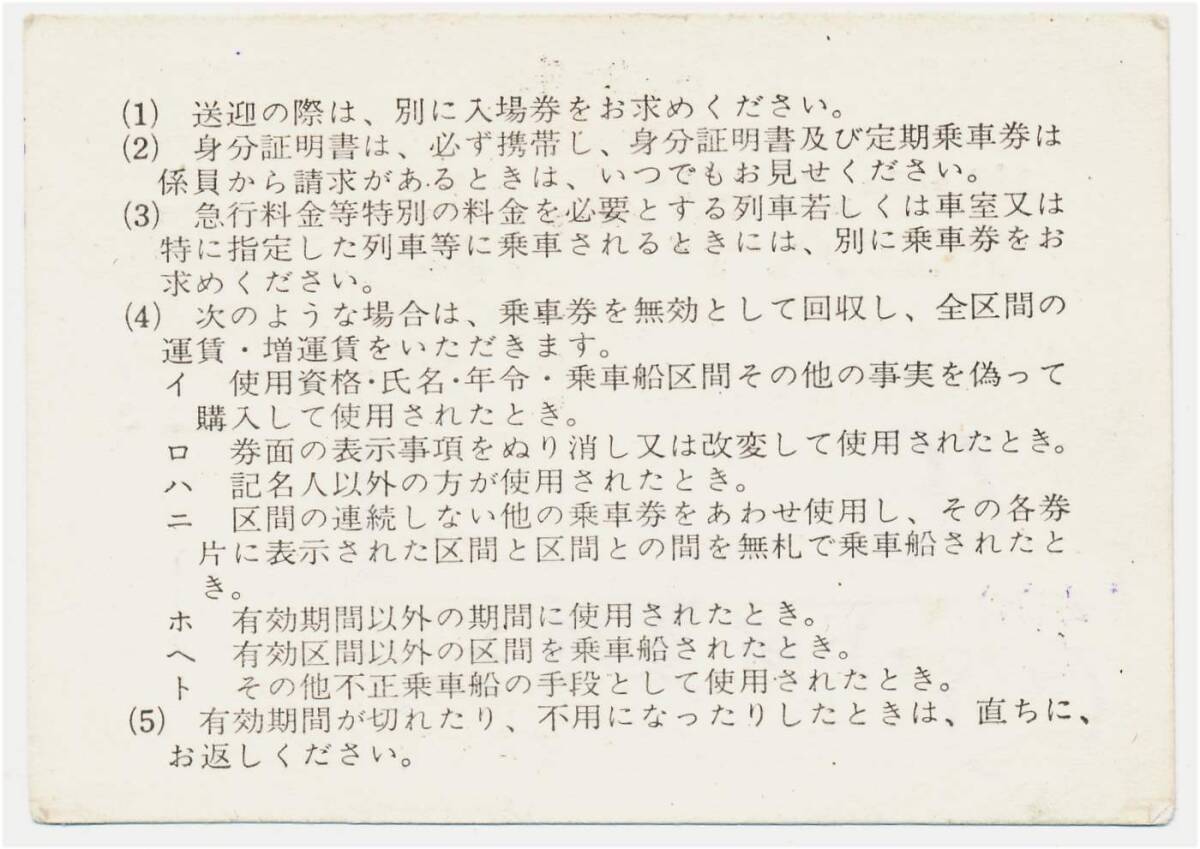 (1) 送迎の際は、別に入場券をお求めください。
(2) 身分証明書は、必ず携帯し、身分証明書及び定期乗車券は
係員から請求があるときは、いつでもお見せください。
(3) 急行料金等特別の料金を必要とする列車若しくは車室又は
特に指定した列車等に乗車されるときには、別に乗車券をお
求めください。
(4) 次のような場合は、乗車券を無効として回収し、全区間の
運賃・増運賃をいただきます。
イ 使用資格・氏名・年令・乗車船区間その他の事実を偽って
購入して使用されたとき。
ロ 券面の表示事項をぬり消し又は改変して使用されたとき。
ハ 記名人以外の方が使用されたとき。
ニ 区間の連続しない他の乗車券をあわせ使用し、その各券
片に表示された区間と区間との間を無札で乗車船されたと
き。
ホ 有効期間以外の期間に使用されたとき。
ヘ 有効区間以外の区間を乗車船されたとき。
ト その他不正乗車船の手段として使用されたとき。
(5) 有効期間が切れたり、不用になったりしたときは、直ちに、
お返しください。